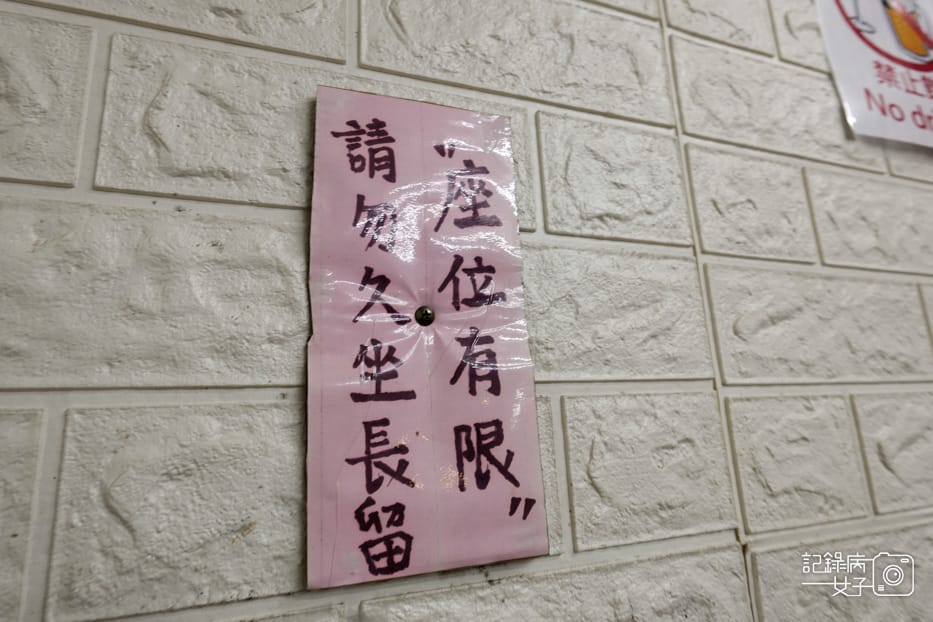 "座位有限"
請勿久坐長留
禁止
No
記錄病
女子